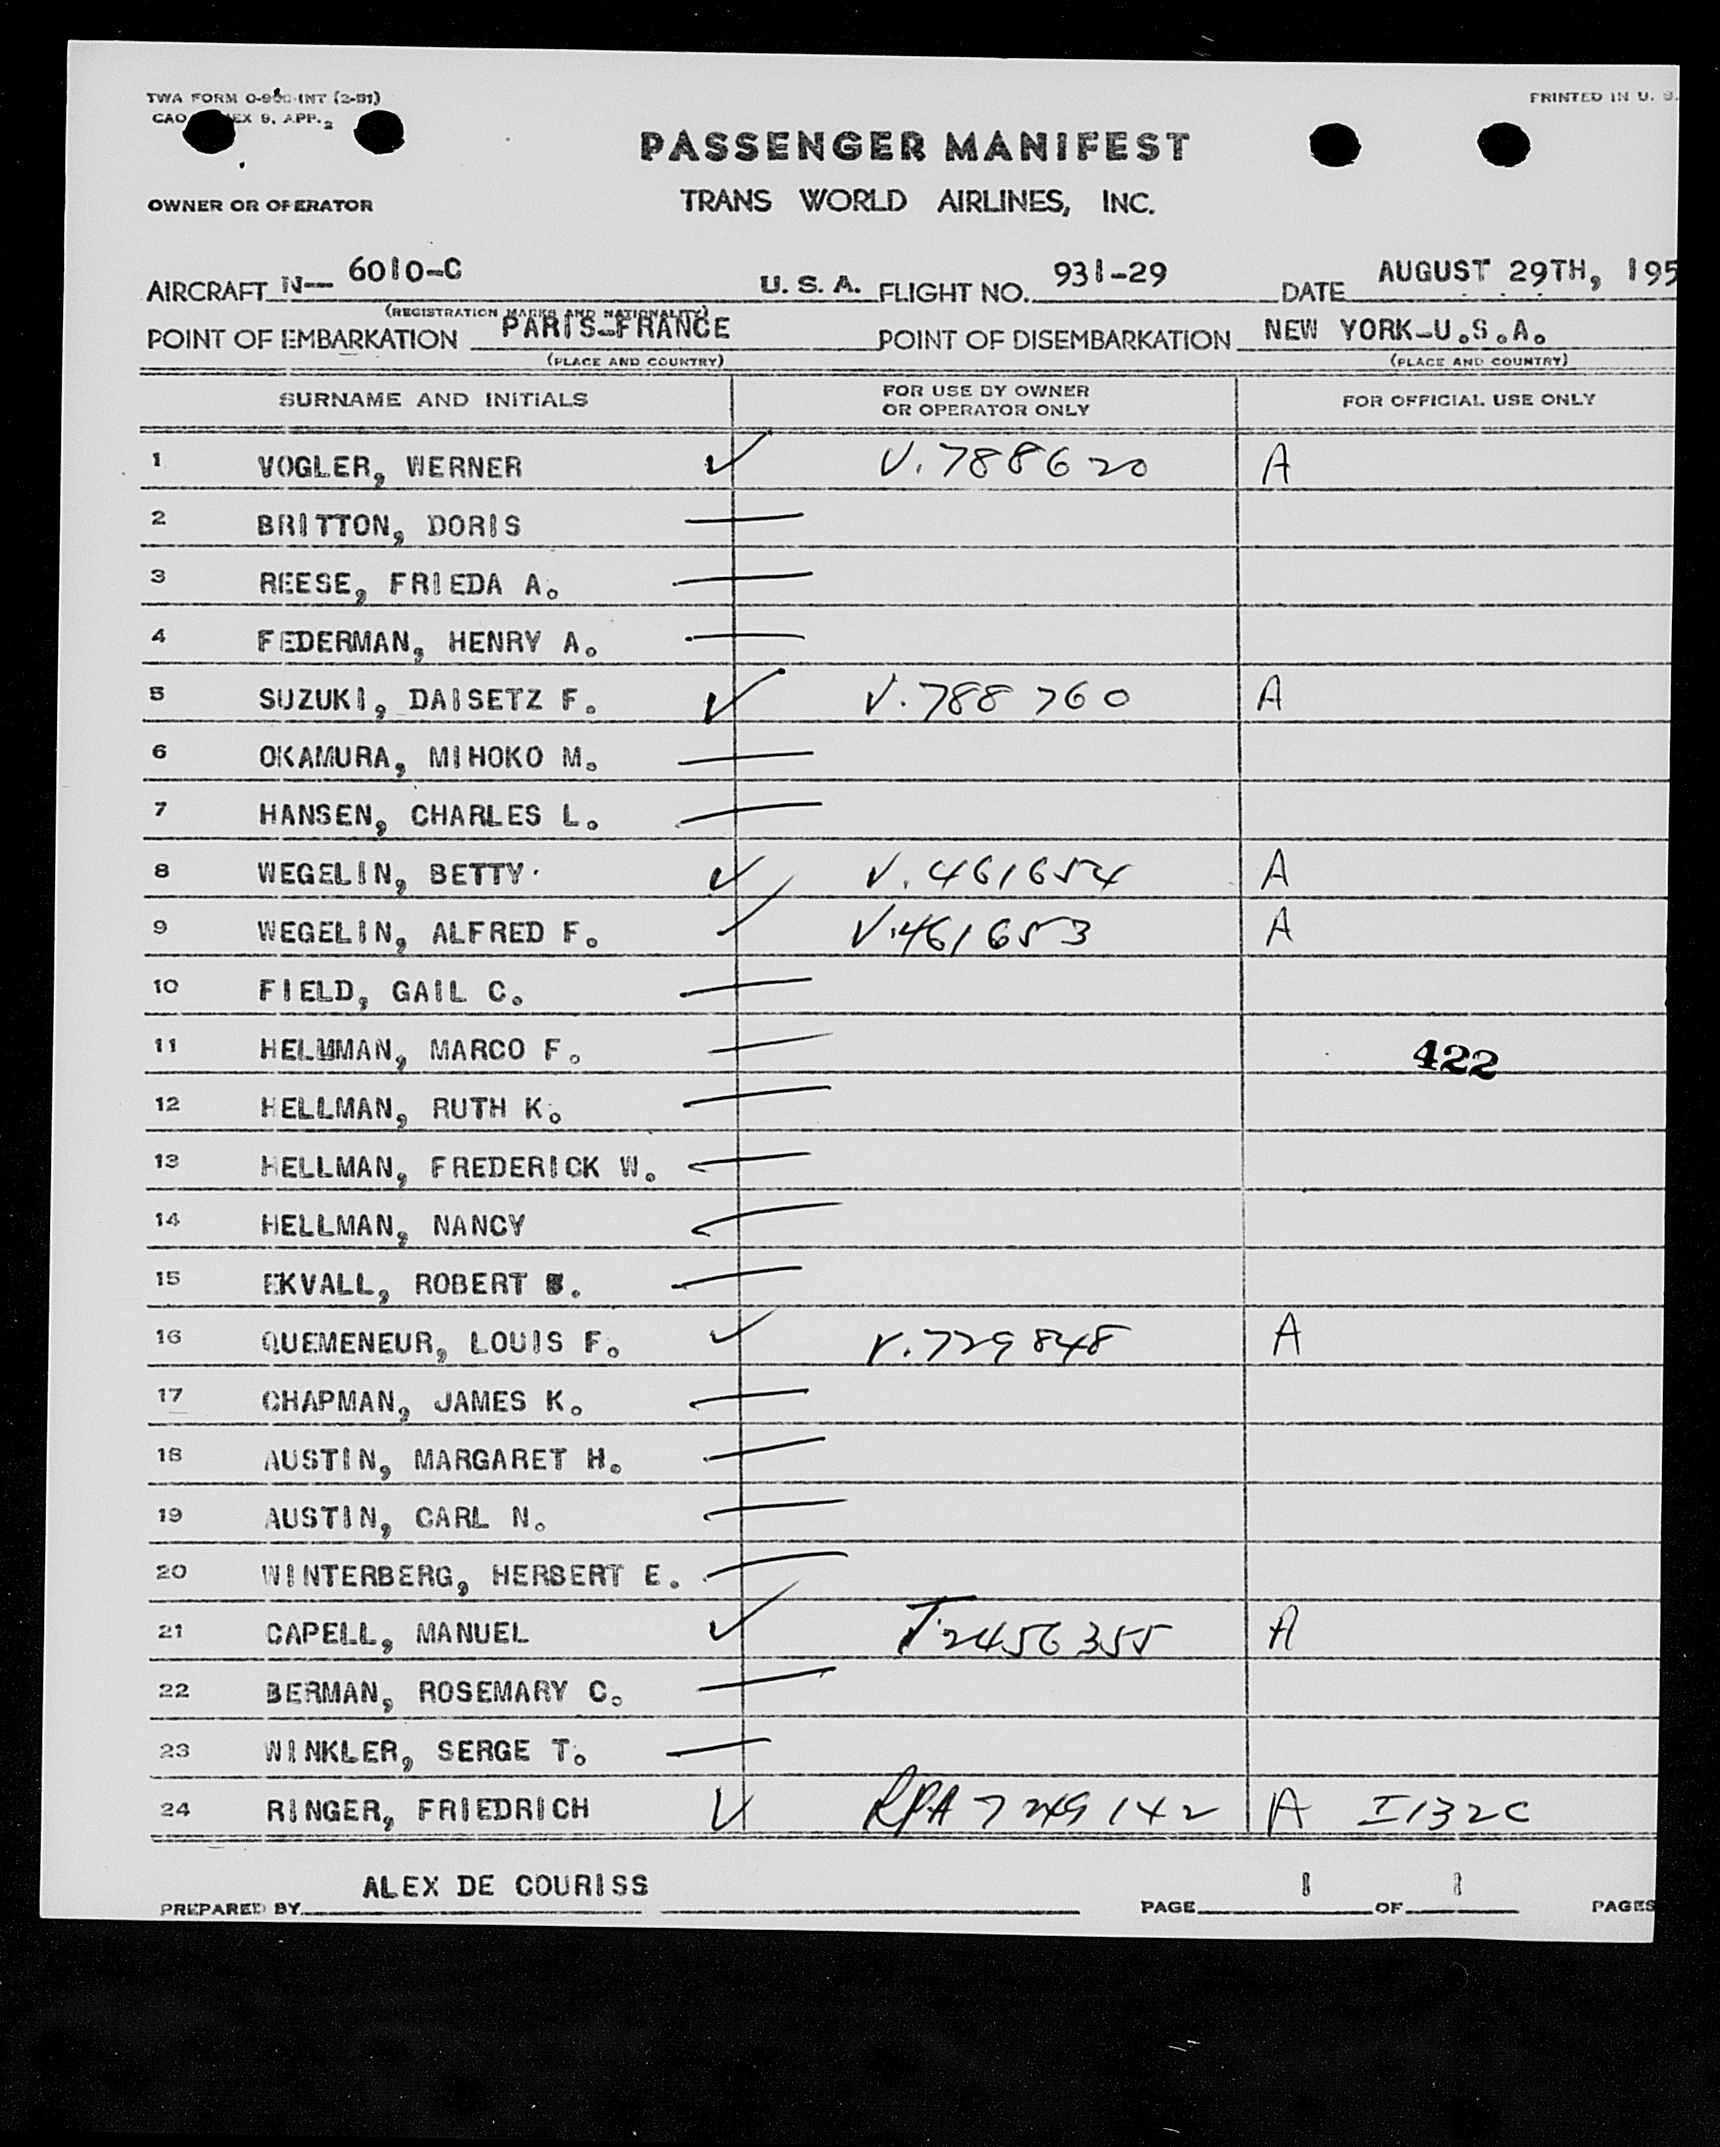 TWA FORM O-9 INT (2-51) PRINTED IN U. S.
CAO EX 9, APP. 2
PASSENGER MANIFEST
OWNER OR OPERATOR TRANS WORLD AIRLINES, INC.
AIRCRAFT N-- 6010-C U. S. A. FLIGHT NO. 931-29 DATE AUGUST 29TH, 195
(REGISTRATION MARKS AND NATIONALITY)
POINT OF EMBARKATION PARIS-FRANCE POINT OF DISEMBARKATION NEW YORK-U.S.A.
(PLACE AND COUNTRY) (PLACE AND COUNTRY)
SURNAME AND INITIALS FOR USE BY OWNER OR OPERATOR ONLY FOR OFFICIAL USE ONLY
1 VOGLER, WERNER ✓ V. 788620 A
2 BRITTON, DORIS —
3 REESE, FRIEDA A. —
4 FEDERMAN, HENRY A. —
5 SUZUKI, DAISETZ F. ✓ V. 788760 A
6 OKAMURA, MIHOKO M. —
7 HANSEN, CHARLES L. —
8 WEGELIN, BETTY ✓ V. 461654 A
9 WEGELIN, ALFRED F. ✓ V. 461653 A
10 FIELD, GAIL C. —
11 HELMMAN, MARCO F. — 422
12 HELLMAN, RUTH K. —
13 HELLMAN, FREDERICK W. —
14 HELLMAN, NANCY —
15 EKVALL, ROBERT B. —
16 QUEMENEUR, LOUIS F. ✓ V. 729848 A
17 CHAPMAN, JAMES K. —
18 AUSTIN, MARGARET H. —
19 AUSTIN, CARL N. —
20 WINTERBERG, HERBERT E. —
21 CAPELL, MANUEL ✓ T-2456355 A
22 BERMAN, ROSEMARY C. —
23 WINKLER, SERGE T. —
24 RINGER, FRIEDRICH ✓ RPA 7249142 A I132C
PREPARED BY ALEX DE COURISS PAGE 1 OF 1 PAGES